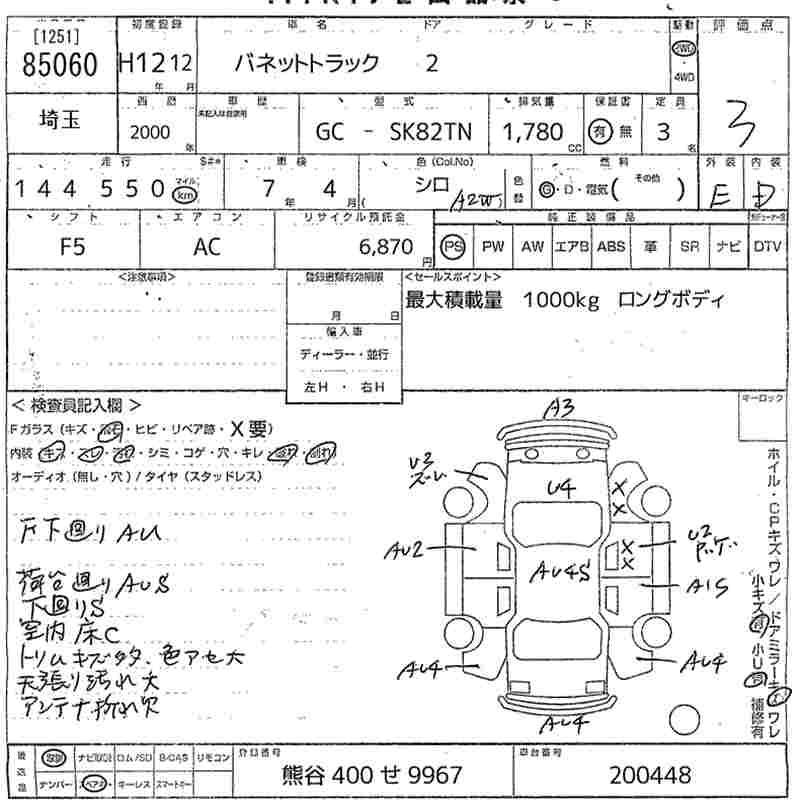 [1251]
85060
初度登録
H12 12
年 月
車名 ドア グレード
バネットトラック 2
駆動
2WD
・
4WD
評価点
3
埼玉
西暦
2000
年
車歴
未記入は自家用
型式
GC - SK82TN
排気量
1,780
CC
保証書
有 無
定員
3
名
走行 S#*
144550
マイル
km
車検
7年 4月
色(Col.No)
シロ
(A2W)
色替
燃料
G・D・電気( その他 )
外装
E
内装
D
シフト
F5
エアコン
AC
リサイクル預託金
6,870
円
純正装備品
PS PW AW エアB ABS 革 SR ナビ DTV
<注意事項>
登録書類有効期限
月 日
輸入車
ディーラー・並行
左H ・ 右H
<セールスポイント>
最大積載量 1000kg ロングボディ
< 検査員記入欄 >
Fガラス (キズ・飛石・ヒビ・リペア跡・X要)
内装 キズ・スレ・汚れ・シミ・コゲ・穴・キレ
オーディオ (無し・穴) / タイヤ (スタッドレス)
キーロック
下回り AU
荷台廻り AUS
下回りS
室内 床C
トリムキズ 色アセ大
天張り汚れ大
アンテナ折れ欠
A3
U2
ズレ
U4
X
X
AU2
AU4S
X
X
U2
A1S
AU4
AU4
AU4
ホイル・CPキズワレ / ドアミラーキズワレ
小キズ有 小U有 補修有
後送品
取説 ナビROM ROM/SD B-CAS リモコン
ナンバー スペアキー キーレス スマートキー
登録番号
熊谷 400 せ 9967
車台番号
200448